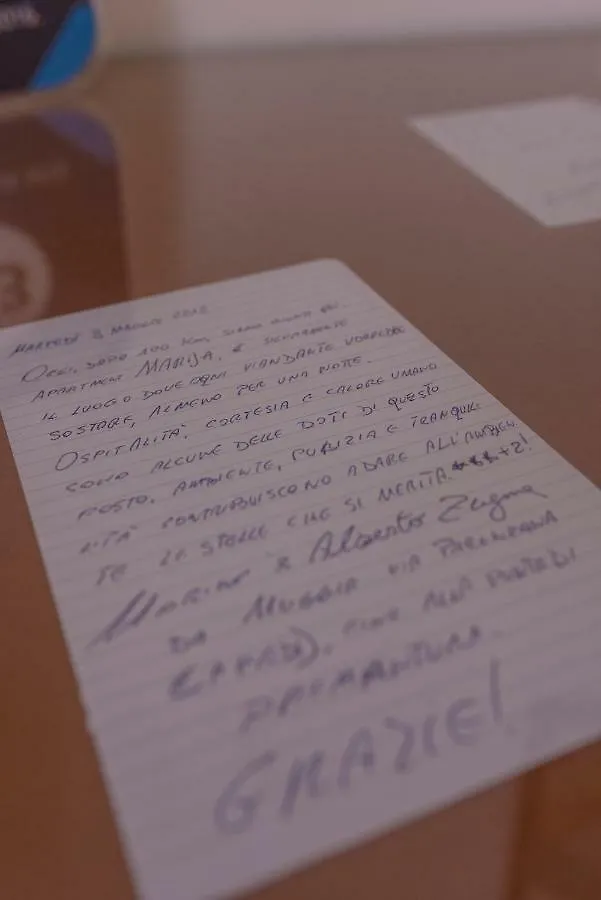 MARTEDÌ 8 MAGGIO 2018
OGGI, DOPO 100 KM, SIAMO GIUNTI QUI.
APARTMENT MARIJA, È SICURAMENTE
IL LUOGO DOVE OGNI VIANDANTE VORREBBE
SOSTARE, ALMENO PER UNA NOTTE.
OSPITALITÀ, CORTESIA E CALORE UMANO
SONO ALCUNE DELLE DOTI DI QUESTO
POSTO, AMBIENTE, PULIZIA E TRANQUIL-
LITÀ CONTRIBUISCONO A DARE ALL'AMBIEN
TE LE STELLE CHE SI MERITA +2!
MARINO & Alberto
DA MUGGIA VIA PARENZANA
FINO ALLA PUNTA DI
PREMANTURA.
GRAZIE!